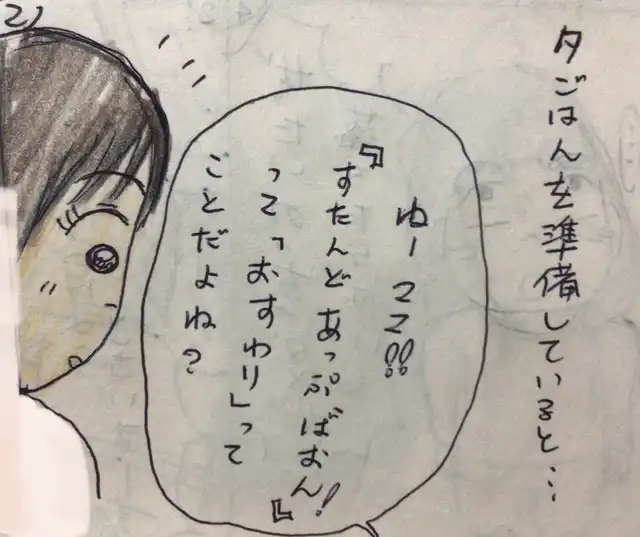 2)
夕ごはんを準備していると…
ねーママ!!
『すたんど あっぷばおん!』
って「おすわり」って
ことだよね?